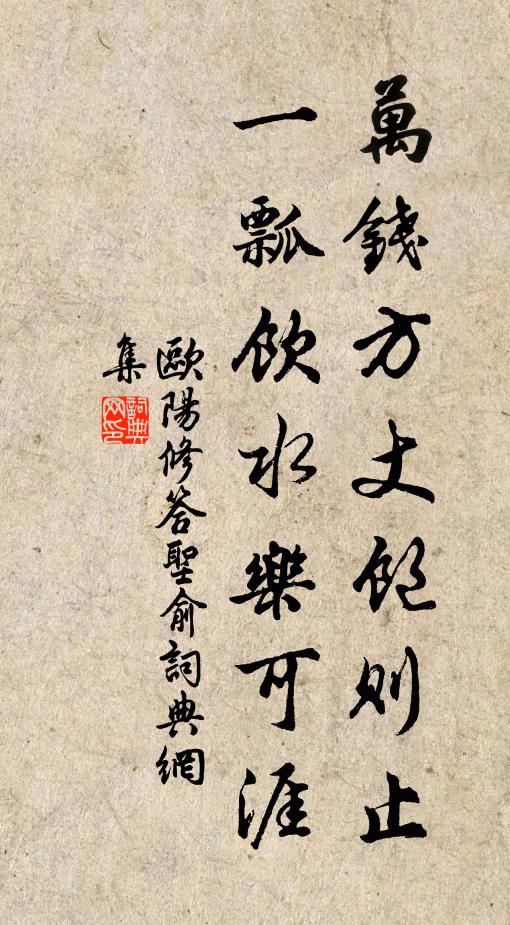 萬錢方丈飽則止
一瓢飲水樂可涯
歐陽修答聖俞詞典網
集
詞典網印